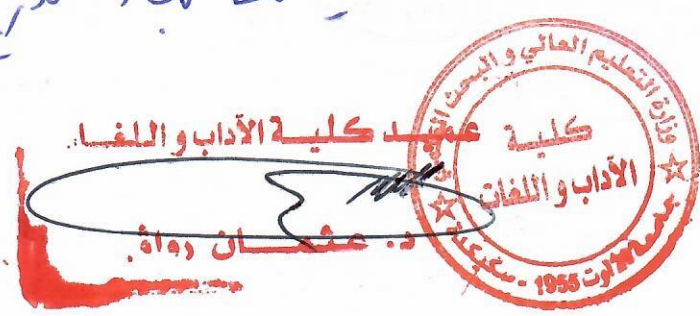 عميد كلية الآداب واللغات
د. عثمان رواق
وزارة التعليم العالي و البحث العلمي
كلية
الآداب واللغات
جامعة 20 أوت 1955 - سكيكدة